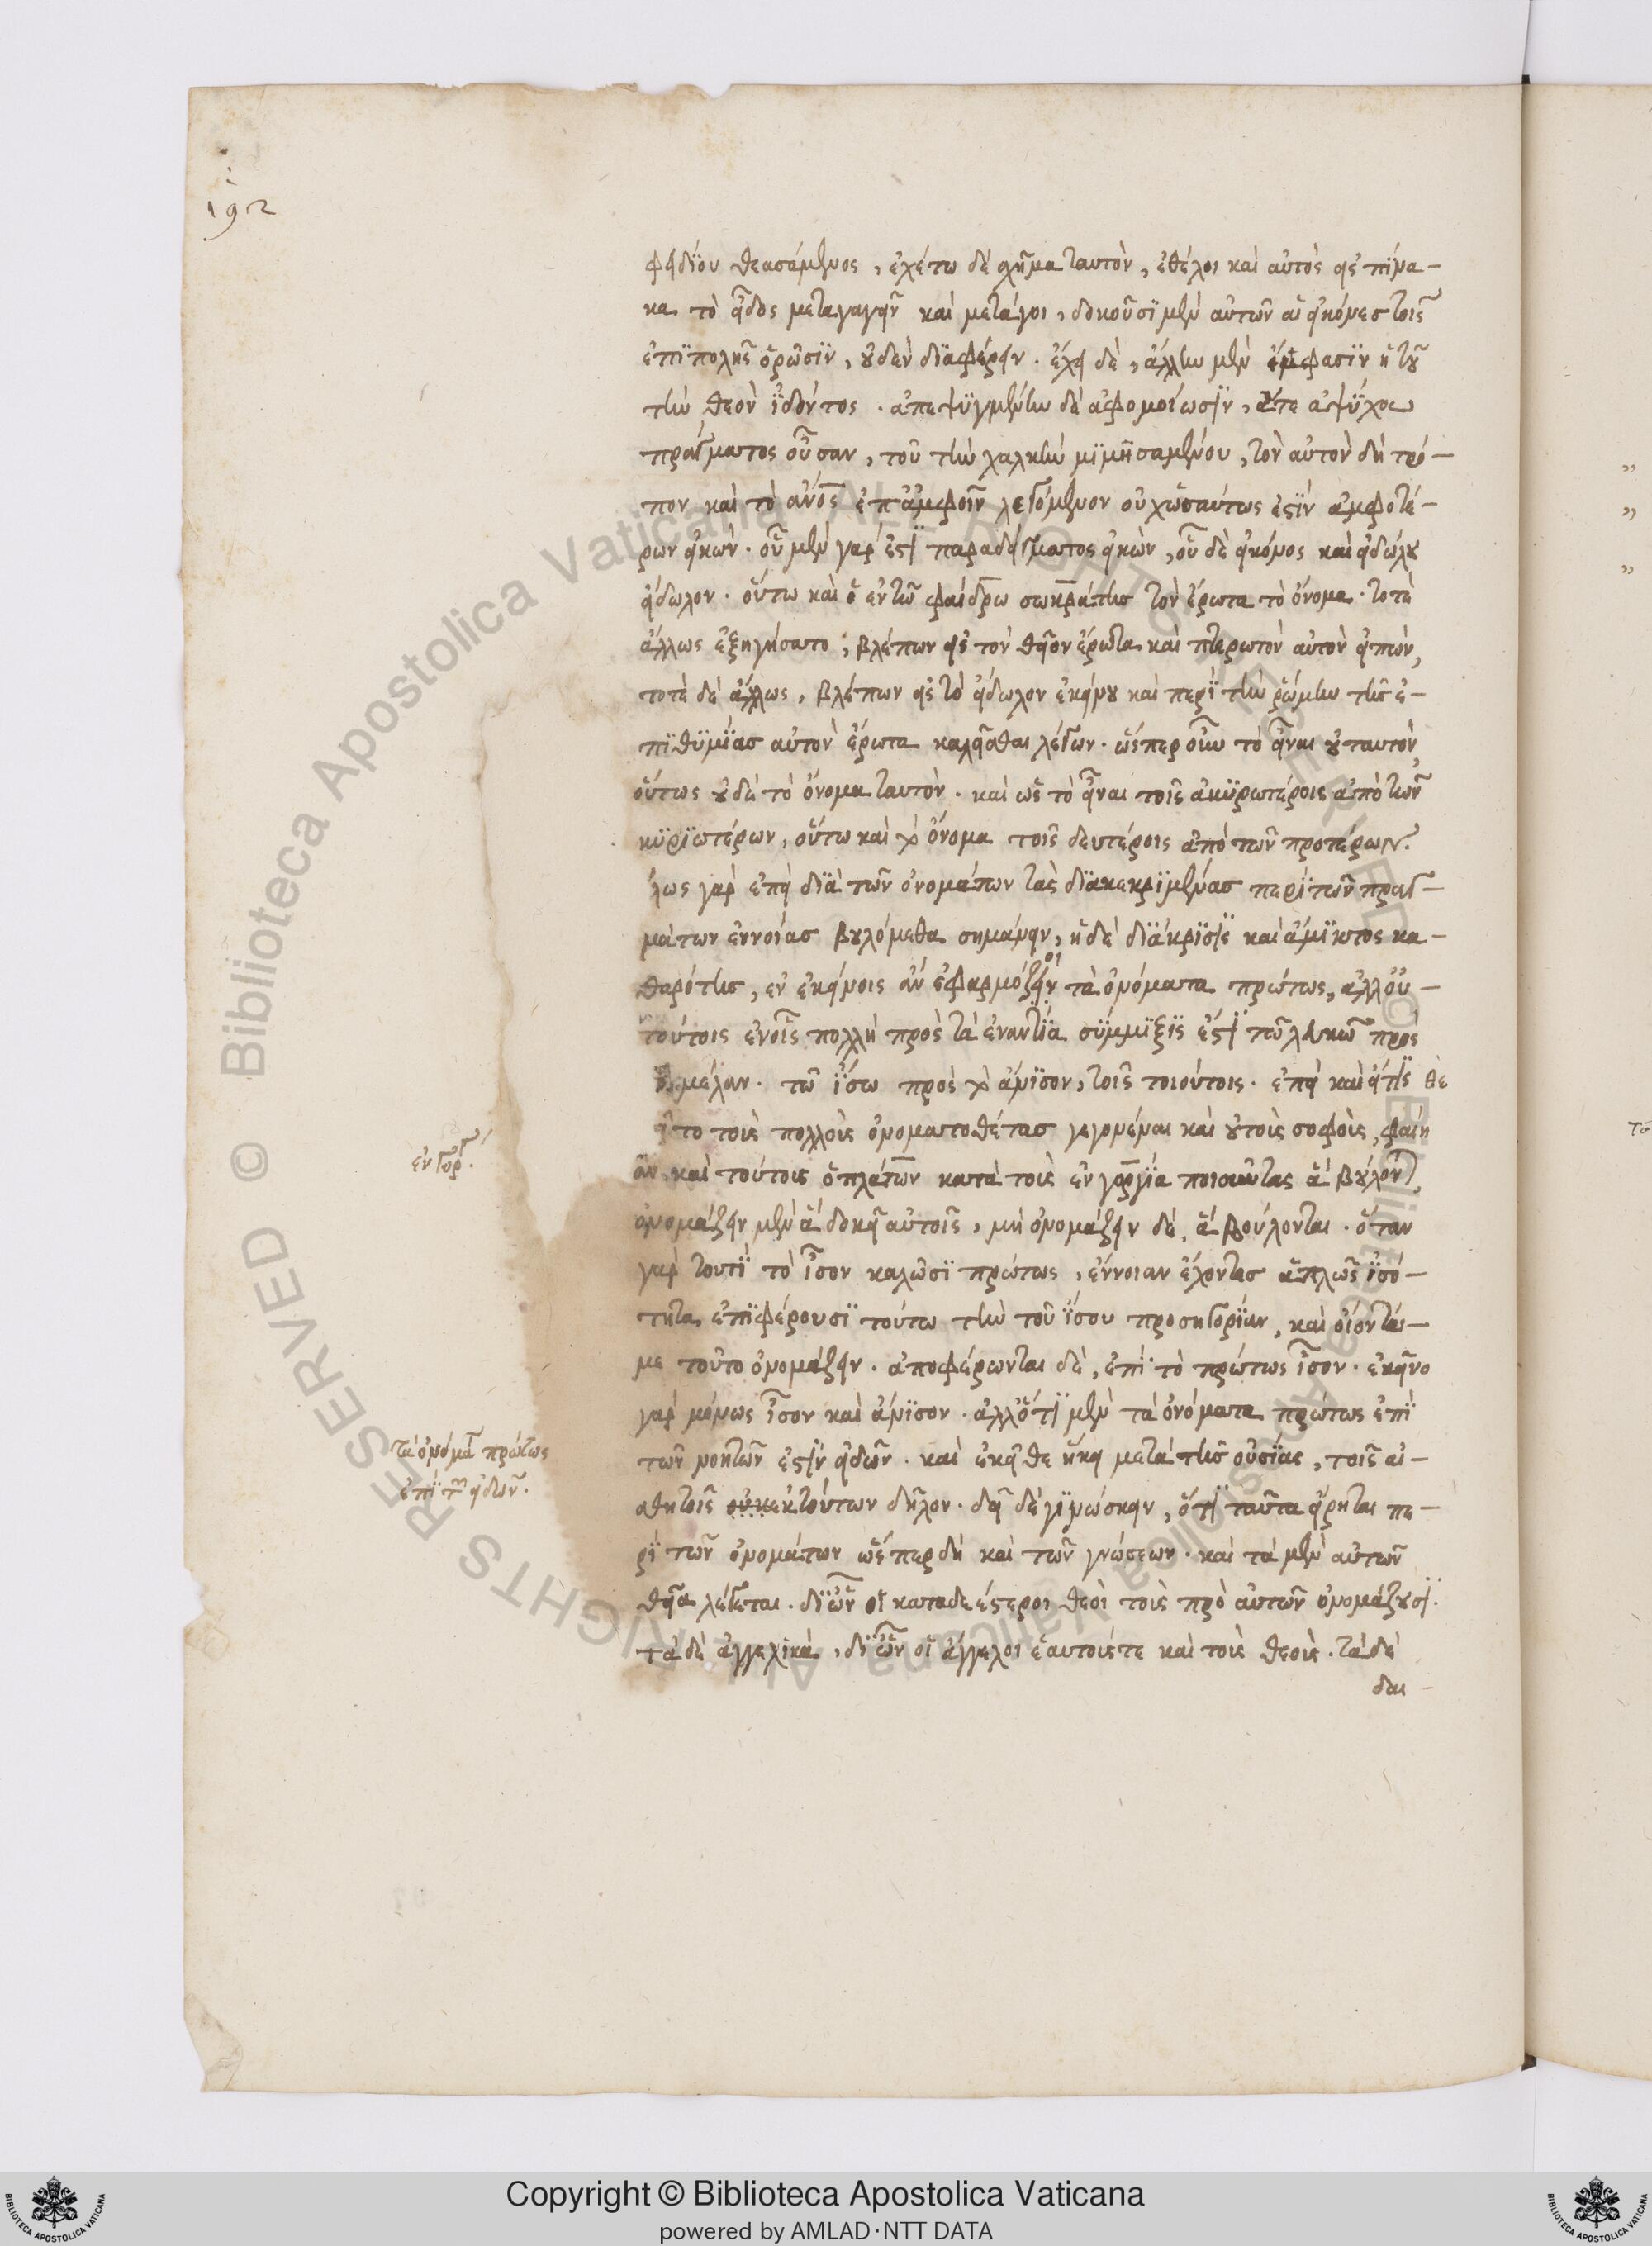 192
φειδίου θεασάμενος, ἐχέτω δὲ σχῆμα ταυτὸν, ἐθέλοι καὶ αὐτὸς εἰς πίνα-
κα τὸ εἶδος μεταγαγεῖν καὶ μετάγοι, δοκοῦσϊ μὲν αὐτῶν αἱ εἰκόνες τοῖς
ἐπϊπολῆς ὁρῶσϊν, οὐδὲν δϊαφέρειν. ἔχει δὲ, ἄλλην μὲν ἔμφασϊν ἡ τοῦ
τὴν θεὸν ἰδόντος. ἀπεψυγμένην δὲ ἀφομοίωσιν, ἅτε ἀψύχου
πράγματος οὖσαν, τοῦ τὴν χαλκὴν μϊμησαμένου, τὸν αὐτὸν δὴ τρό-
πον καὶ τὸ ἀνος ἐπ' ἀμφοῖν λεγόμενον οὐχ ὡσαύτως ἐστὶν ἀμφοτέ-
ρων εἰκών. οὗ μὲν γάρ ἐστι παραδείγματος εἰκὼν, οὗ δὲ εἰκόνος καὶ εἰδώλου
εἴδωλον. οὕτω καὶ ὁ ἐν τῶ φαίδρω σωκράτης τὸν ἔρωτα τὸ ὄνομα. τοτὲ
ἄλλως ἐξηγήσατο, βλέπων εἰς τὸν θεῖον ἔρωτα καὶ πτερωτὸν αὐτὸν εἰπὼν,
τοτὲ δὲ ἄλλως, βλέπων εἰς τὸ εἴδωλον ἐκείνου καὶ περὶ τὴν ῥώμην τῆς ἐ-
πϊθϋμίας αὐτὸν ἔρωτα καλεῖσθαι λέγων. ὥσπερ οὖν τὸ εἶναι οὐ ταυτὸν,
οὕτως οὐδὲ τὸ ὄνομα ταυτὸν. καὶ ὡς τὸ εἶναι τοῖς ἀκϋρωτέροις ἀπὸ τῶν
κϋρϊωτέρων, οὕτω καὶ τὸ ὄνομα τοῖς δευτέροις ἀπὸ τῶν προτέρων.
λως γὰρ ἐπεὶ δϊὰ τῶν ὀνομάτων τὰς δϊακεκρϊμένας περὶ τῶν πραγ-
μάτων ἐννοίας βουλόμεθα σημαίνειν, ἡ δὲ δϊάκρϊσις καὶ ἀμϊκτος κα-
θαρότης, ἐν ἐκείνοις ἂν ἐφαρμόζοι τὰ ὀνόματα πρώτως, ἀλλ' οὐ-
τούτοις ἐν οἷς πολλὴ πρὸς τὰ ἐναντϊα σύμμϊξϊς ἐστὶ τῶ λευκῶ πρὸς
τὸ μέλαν. τῶ ἴσω πρὸς τὸ ἄνϊσον, τοῖς τοιούτοις. ἐπεὶ καὶ εἴ τις θε
ῖτο τοὺς πολλοὺς ὀνοματοθέτας γεγονέναι καὶ οὐ τοὺς σοφοὺς, φαίη
ἂν καὶ τούτοις ὁ πλάτων κατὰ τοὺς ἐν γοργία ποιοῦντας ἃ βούλονται,
ὀνομάζειν μὲν ἃ δοκεῖ αὐτοῖς, μὴ ὀνομάζειν δὲ, ἃ βούλονται. ὅταν
γὰρ τουτὶ τὸ ἴσον καλῶσϊ πρώτως, ἔννοιαν ἔχοντες ἁπλῶς ἰσό-
τητα ἐπϊφέρουσϊ τούτω τὴν τοῦ ἴσου προσηγορίαν, καὶ οἴονταί-
με τοῦτο ὀνομάζειν. ἀποφέρωνται δὲ, ἐπὶ τὸ πρώτως ἴσον. ἐκεῖνο
γὰρ μόνως ἴσον καὶ ἄνϊσον. ἀλλ' ὅτϊ μὲν τὰ ὀνόματα πρώτως ἐπὶ
τῶν νοητῶν ἐστὶν εἰδῶν. καὶ ἐκεῖθε ἥκει μετὰ τῆς οὐσίας, τοῖς αἰ-
σθητοῖς οὐκ ἐκ τούτων δῆλον. δεῖ δὲ γϊνώσκειν, ὅτι ταῦτα εἴρηται πε-
ρὶ τῶν ὀνομάτων ὥσπερ δὴ καὶ τῶν γνώσεων. καὶ τὰ μὲν αὐτῶν
θεῖα λέγεται. δϊ' ὧν οἱ καταδεέστεροι θεοὶ τοὺς πρὸ αὐτῶν ὀνομάζουσι.
τὰ δὲ ἀγγελϊκὰ, δϊ' ὧν οἱ ἄγγελοι ἑαυτούς τε καὶ τοὺς θεοὺς. τὰ δὲ
δαι-
ἐν γορ.
τὰ ὀνόματ πρώτως
ἐπὶ τῶν εἰδῶν.
Copyright © Biblioteca Apostolica Vaticana
powered by AMLAD·NTT DATA